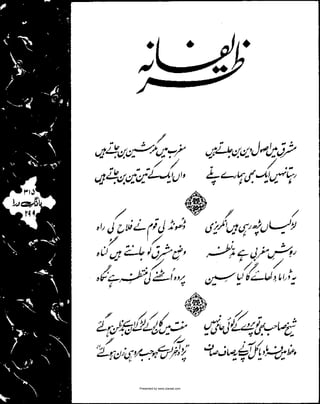 ظریفانہ
مشرق میں اصول دین بن جاتے ہیں
مغرب میں مگر مشین بن جاتے ہیں
رہتا نہیں ایک بھی ہمارے پلے
واں ایک کے تین تین بن جاتے ہیں
لڑکیاں پڑھ رہی ہیں انگریزی
ڈھونڈ لی قوم نے فلاح کی راہ
روش مغربی ہے مدنظر
وضع مشرق کو جانتے ہیں گناہ
یہ ڈراما دکھائے گا کیا سین
پردہ اٹھنے کی منتظر ہے نگاہ
شیخ صاحب بھی تو پردے کے کوئی حامی نہیں
مفت میں کالج کے لڑکے ان سے بدظن ہو گئے
وعظ میں فرما دیا کل آپ نے یہ صاف صاف
پردہ آخر کس سے ہو جب مرد ہی زن ہو گئے
۳۱۵
بانگ درا
۲۹۹